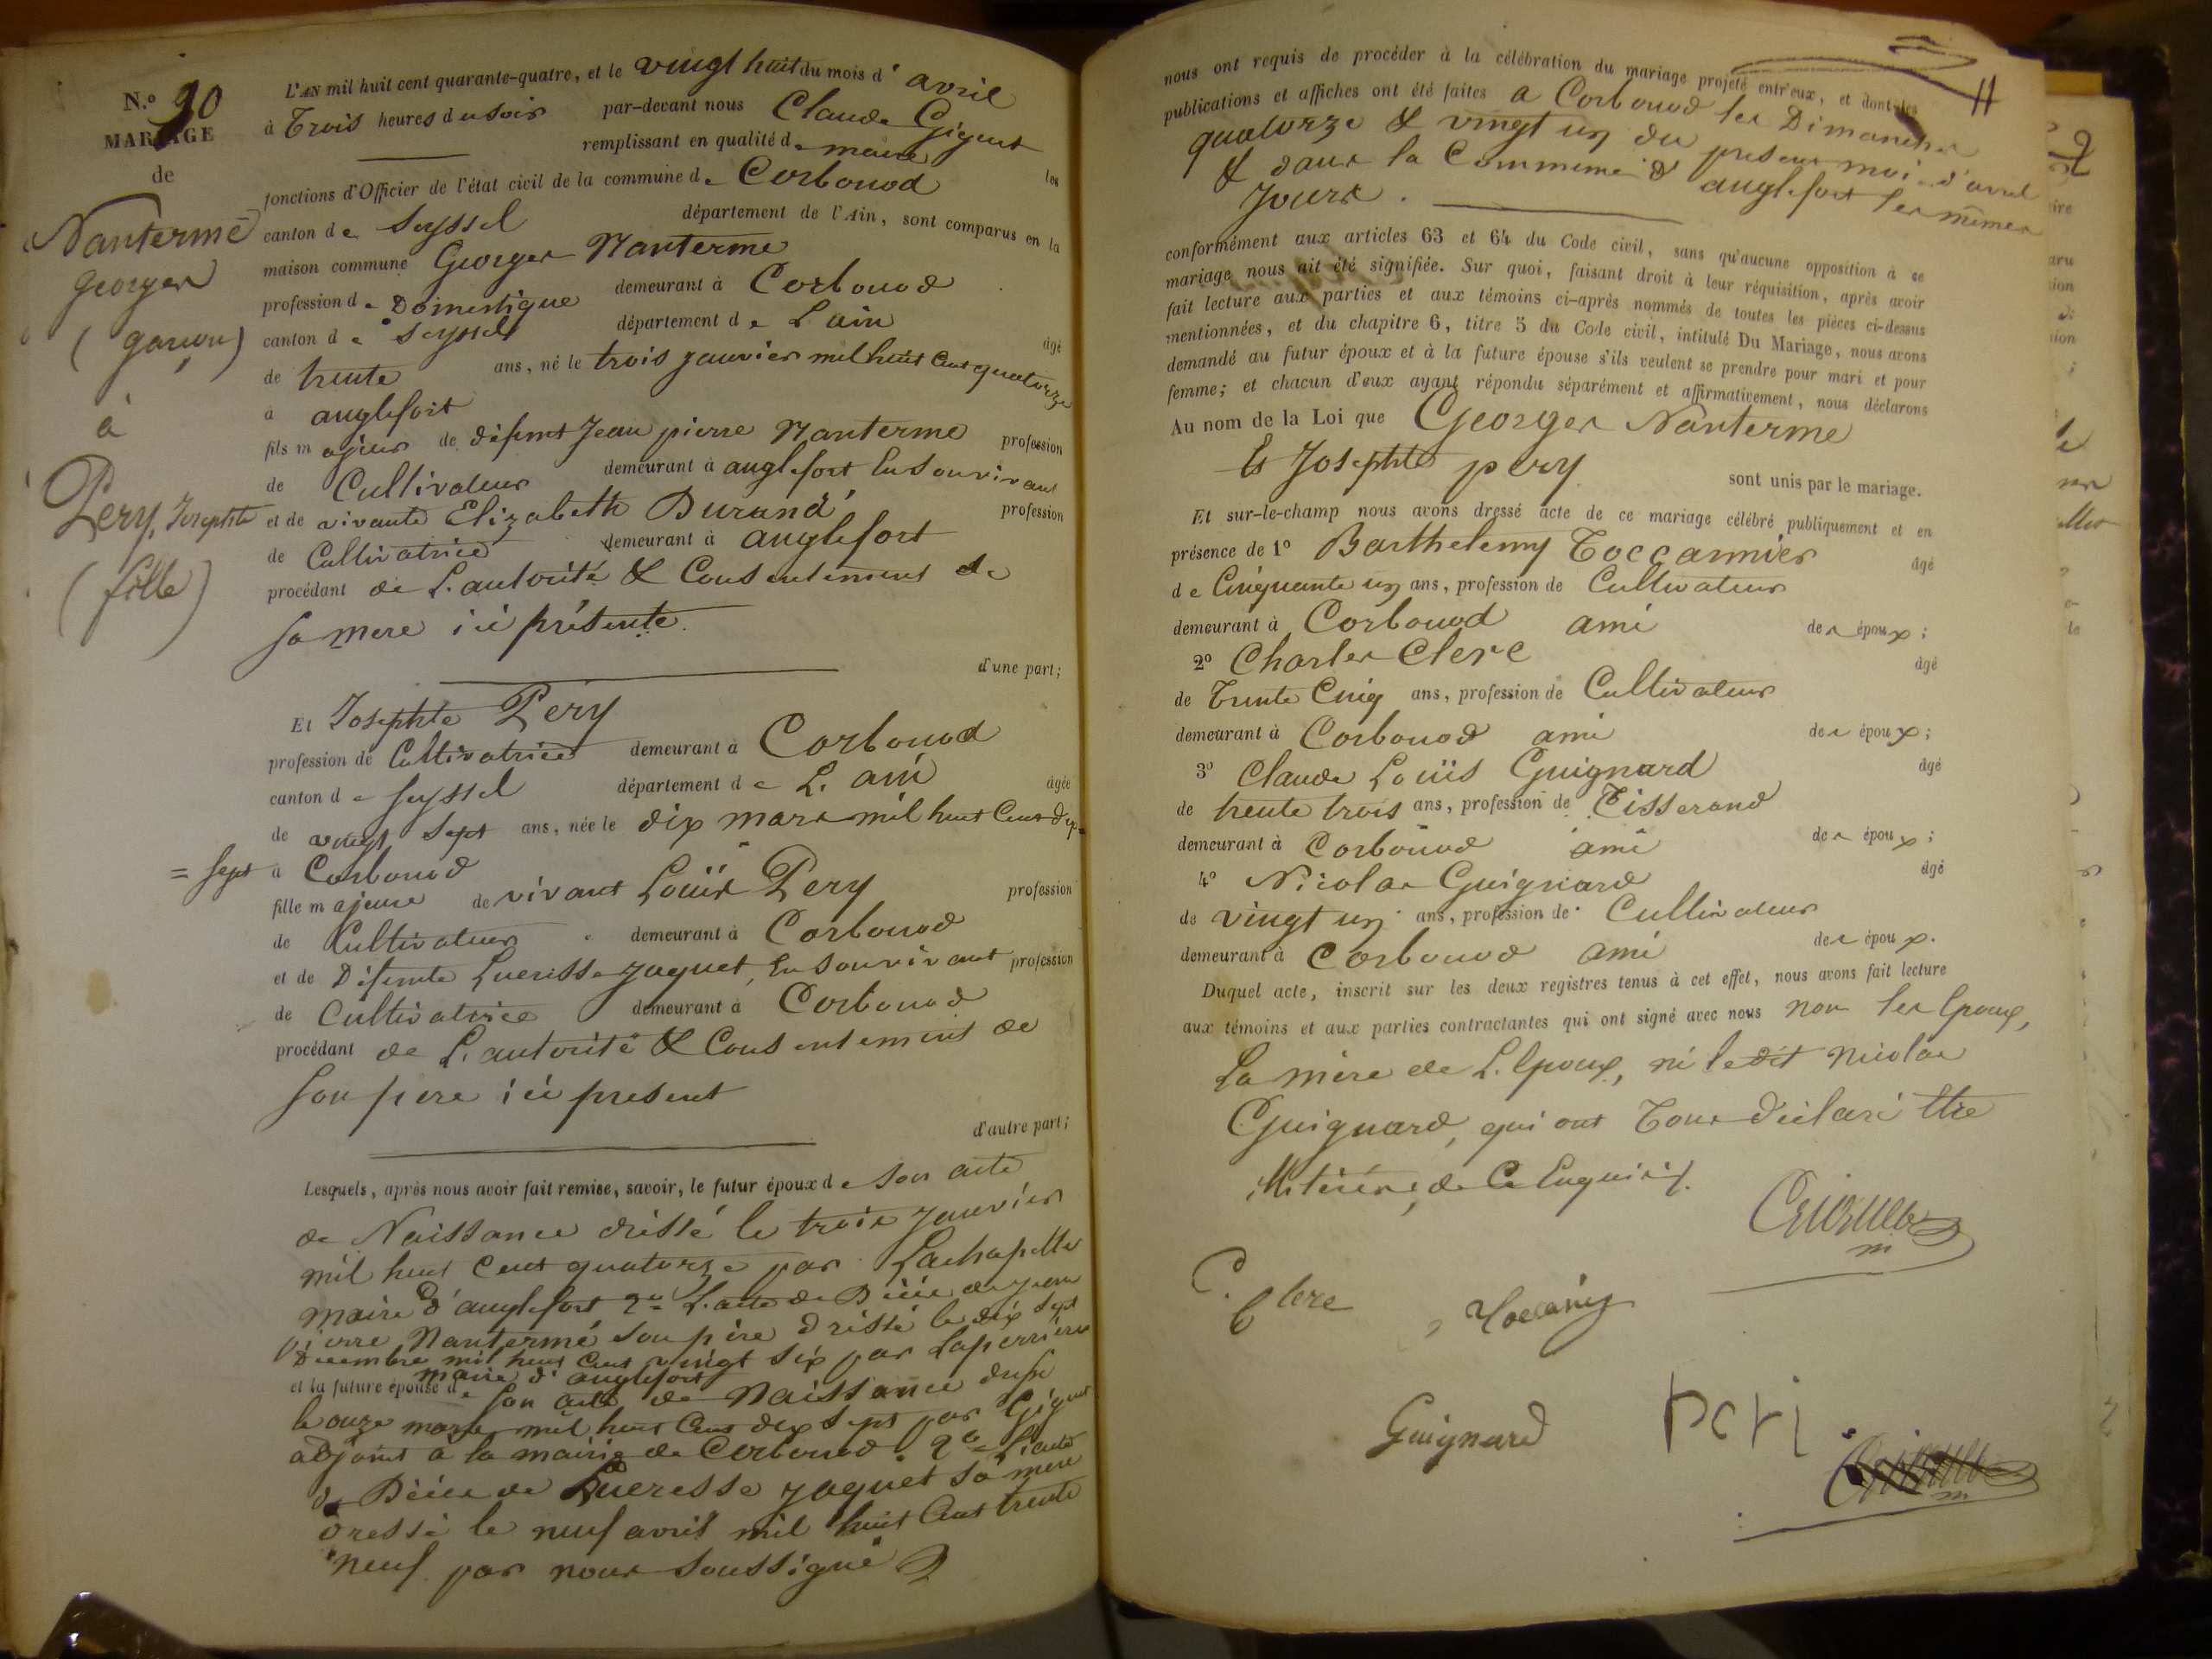 N.o 10
MARIAGE
de
Nanterme
Georges
(garçon)
à
Pery, Josephte
(fille)
L'AN mil huit cent quarante-quatre, et le vingt huit du mois d'avril
à Trois heures du soir par-devant nous Claude Gignet
remplissant en qualité de maire les
fonctions d'Officier de l'état civil de la commune de Corbonod
canton de Seyssel département de l'Ain, sont comparus en la
maison commune Georges Nanterme
profession de Domestique demeurant à Corbonod
canton de Seyssel département de L'ain âgé
de trente ans, né le trois janvier mil huit cent quatorze
à anglefort
fils majeur de défunt Jean pierre Nanterme profession
de Cultivateur demeurant à anglefort En son vivant
et de vivante Elizabeth Durand profession
de Cultivatrice demeurant à anglefort
procédant de L'autorité & Consentement de
sa mere ici présente
d'une part;
Et Josephte Pery
profession de Cultivatrice demeurant à Corbonod
canton de Seyssel département de L'ain âgée
de vingt sept ans, née le dix mars mil huit Cent dix=
= sept à Corbonod
fille majeure de vivant Louïs Pery profession
de Cultivateur demeurant à Corbonod
et de Défunte Lucresse Jaquet, En son vivant profession
de Cultivatrice demeurant à Corbonod
procédant de L'autorité & Consentement de
son pere ici present
d'autre part;
Lesquels, après nous avoir fait remise, savoir, le futur époux de son acte
de Naissance dressé le trois Janvier
mil huit Cent quatorze par Lachapelle
maire d'anglefort 2o L'acte de Décès de jean
pierre Nanterme son père dressé le dix sept
Décembre mil huit Cent vingt six par Laperrière
maire d'anglefort
et la future épouse de son acte de Naissance dressé
le onze mars mil huit Cent dix sept par Gignet
adjoint a la mairie de Corbonod. 2o L'acte
de Décès de Lucresse Jaquet sa mere
dressé le neuf avril mil huit Cent trente
neuf par nous soussigné
11
nous ont requis de procéder à la célébration du mariage projeté entr'eux, et dont les
publications et affiches ont été faites a Corbonod les Dimanches
quatorze & vingt un du present mois d'avril
& dans la Commune d'anglefort les mêmes
Jours.
conformément aux articles 63 et 64 du Code civil, sans qu'aucune opposition à ce
mariage nous ait été signifiée. Sur quoi, faisant droit à leur réquisition, après avoir
fait lecture aux parties et aux témoins ci-après nommés de toutes les pièces ci-dessus
mentionnées, et du chapitre 6, titre 5 du Code civil, intitulé Du Mariage, nous avons
demandé au futur époux et à la future épouse s'ils veulent se prendre pour mari et pour
femme; et chacun d'eux ayant répondu séparément et affirmativement, nous déclarons
Au nom de la Loi que Georges Nanterme
Et Josephte pery
sont unis par le mariage.
Et sur-le-champ nous avons dressé acte de ce mariage célébré publiquement et en
présence de 1o Barthelemy Toccannier âgé
de Cinquante un ans, profession de Cultivateur
demeurant à Corbonod ami des époux;
2o Charles Clerc âgé
de Trente Cinq ans, profession de Cultivateur
demeurant à Corbonod ami des époux;
3o Claude Louïs Guignard âgé
de trente trois ans, profession de Tisserand
demeurant à Corbonod ami des époux;
4o Nicolas Guignard âgé
de vingt un ans, profession de Cultivateur
demeurant à Corbonod ami des époux.
Duquel acte, inscrit sur les deux registres tenus à cet effet, nous avons fait lecture
aux témoins et aux parties contractantes qui ont signé avec nous non les Epoux,
La mère de L'Epoux, ni ledit Nicolas
Guignard, qui ont Tous déclaré Etre
illitérés, de Ce Enquis.
C. Clerc
Guignard
peri